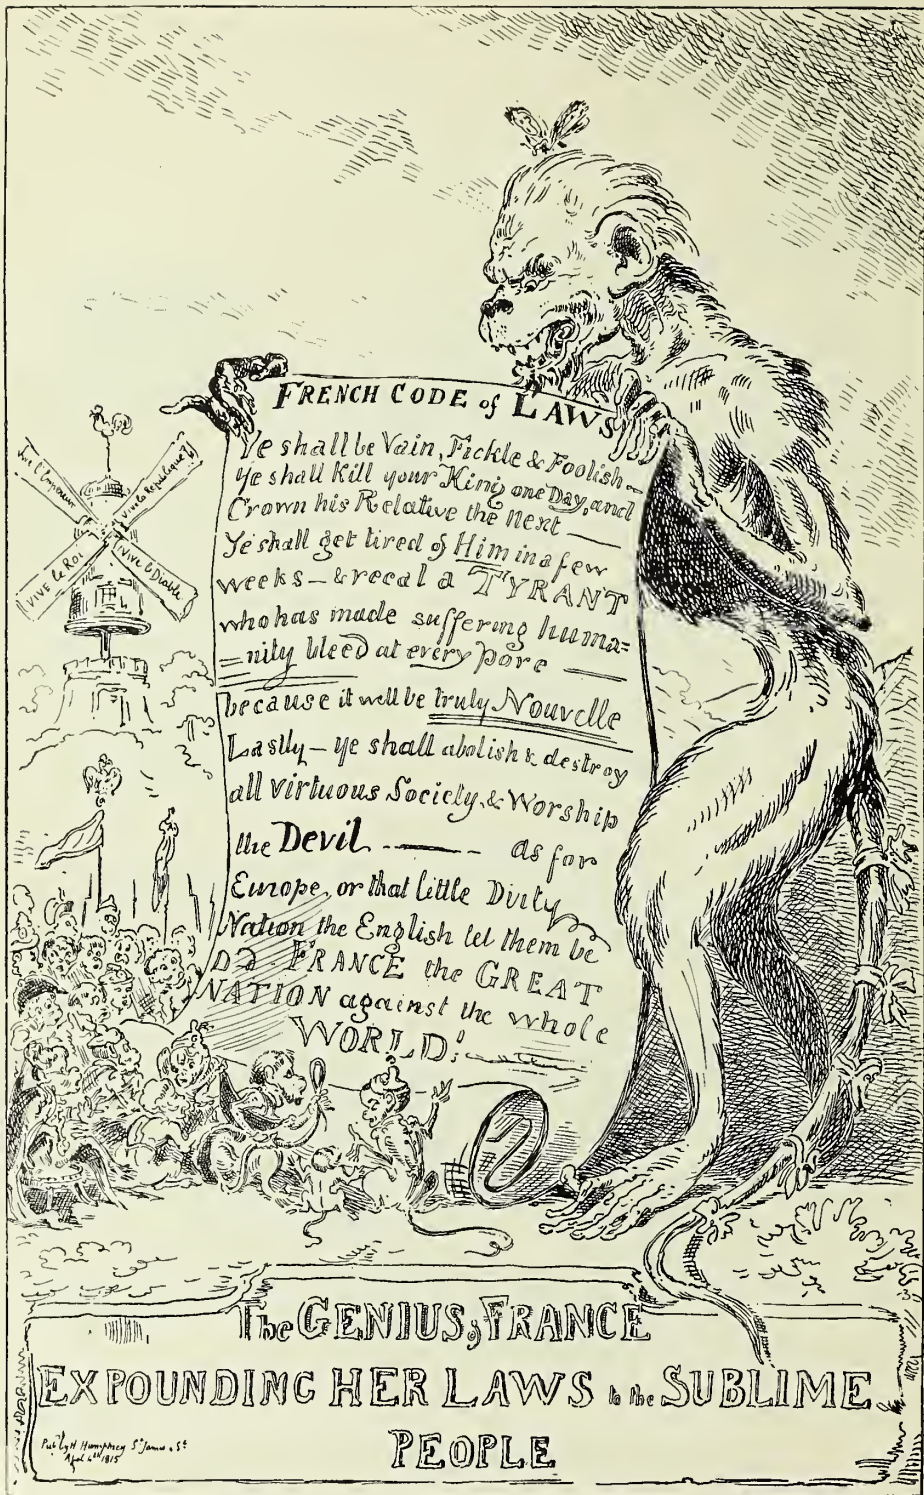 FRENCH CODE of LAWS
Ye shall be Vain, Fickle & Foolish
Ye shall kill your King one Day, and
Crown his Relative the next —
Ye shall get tired of Him in a few
weeks — & recal a TYRANT
who has made suffering huma=
=nity bleed at every pore —
because it will be truly Nouvelle
Lastly — ye shall abolish & destroy
all virtuous Society, & Worship
the Devil — as for
Europe, or that little Dirty
Nation the English let them be
D—d FRANCE the GREAT
NATION against the whole
WORLD!
Vive l'Empereur
Vive la Republique
VIVE le ROI
Vive le Diable
The GENIUS of FRANCE
EXPOUNDING HER LAWS to the SUBLIME
PEOPLE
Pubd by H Humphrey St James's St
April 4th 1815